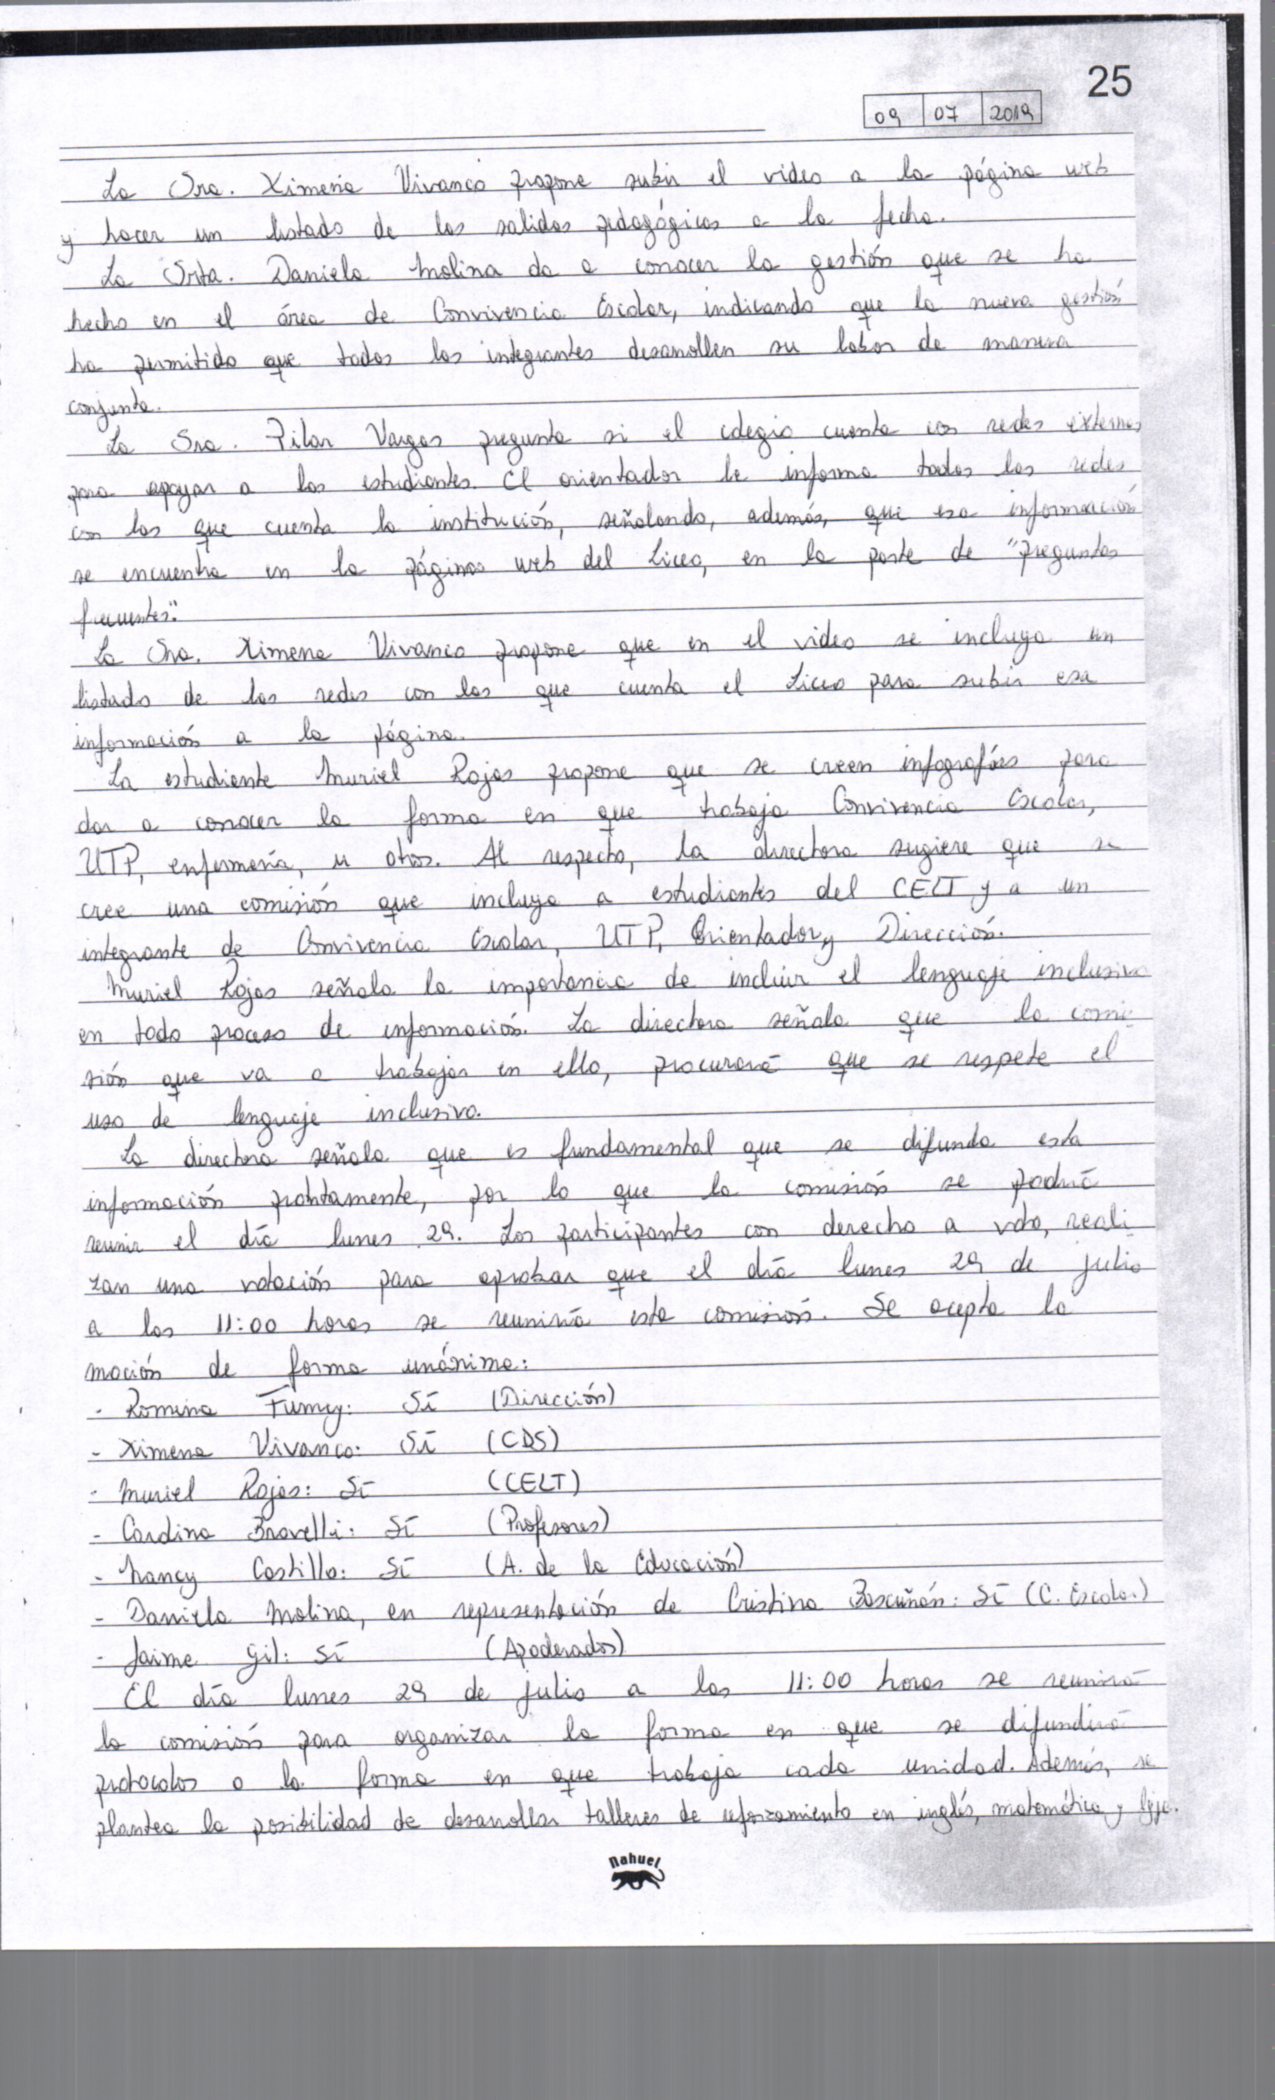 25
09 07 2019
La Sra. Ximena Vivanco propone subir el video a la página web
y hacer un listado de las salidas pedagógicas a la fecha.
La Srta. Daniela Molina da a conocer la gestión que se ha
hecho en el área de Convivencia Escolar, indicando que la nueva gestión
ha permitido que todos los integrantes desarrollen su labor de manera
conjunta.
La Sra. Pilar Vargas pregunta si el colegio cuenta con redes externas
para apoyar a los estudiantes. El orientador le informa todas las redes
con las que cuenta la institución, señalando, además, que esa información
se encuentra en la páginas web del Liceo, en la parte de "preguntas
frecuentes".
La Sra. Ximena Vivanco propone que en el video se incluya un
listado de las redes con las que cuenta el Liceo para subir esa
información a la página.
La estudiante Muriel Rojas propone que se creen infografías para
dar a conocer la forma en que trabaja Convivencia Escolar,
UTP, enfermería, u otros. Al respecto, la directora sugiere que se
cree una comisión que incluya a estudiantes del CELT y a un
integrante de Convivencia Escolar, UTP, Orientador y Dirección.
Muriel Rojas señala la importancia de incluir el lenguaje inclusivo
en todo proceso de información. La directora señala que la comi-
sión que va a trabajar en ello, procurará que se respete el
uso de lenguaje inclusivo.
La directora señala que es fundamental que se difunda esta
información prontamente, por lo que la comisión se podrá
reunir el día lunes 29. Los participantes con derecho a voto, reali
zan una votación para aprobar que el día lunes 29 de julio
a las 11:00 horas se reunirá esta comisión. Se acepta la
moción de forma unánime:
- Romina Fumey: Sí (Dirección)
- Ximena Vivanco: Sí (CDS)
- Muriel Rojas: Sí (CELT)
- Carolina Bravelli: Sí (Profesores)
- Nancy Castillo: Sí (A. de la Educación)
- Daniela Molina, en representación de Cristina Bascuñán: Sí (C. Escolar)
- Jaime Gil: Sí (Apoderados)
El día lunes 29 de julio a las 11:00 horas se reunirá
la comisión para organizar la forma en que se difundirá
protocolos o la forma en que trabaja cada unidad. Además, se
plantea la posibilidad de desarrollar talleres de reforzamiento en inglés, matemática y
nahuel